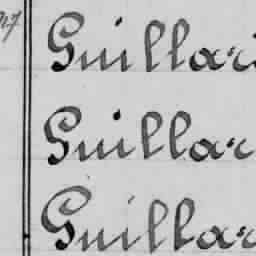 Guillar
Guillar
Guillar